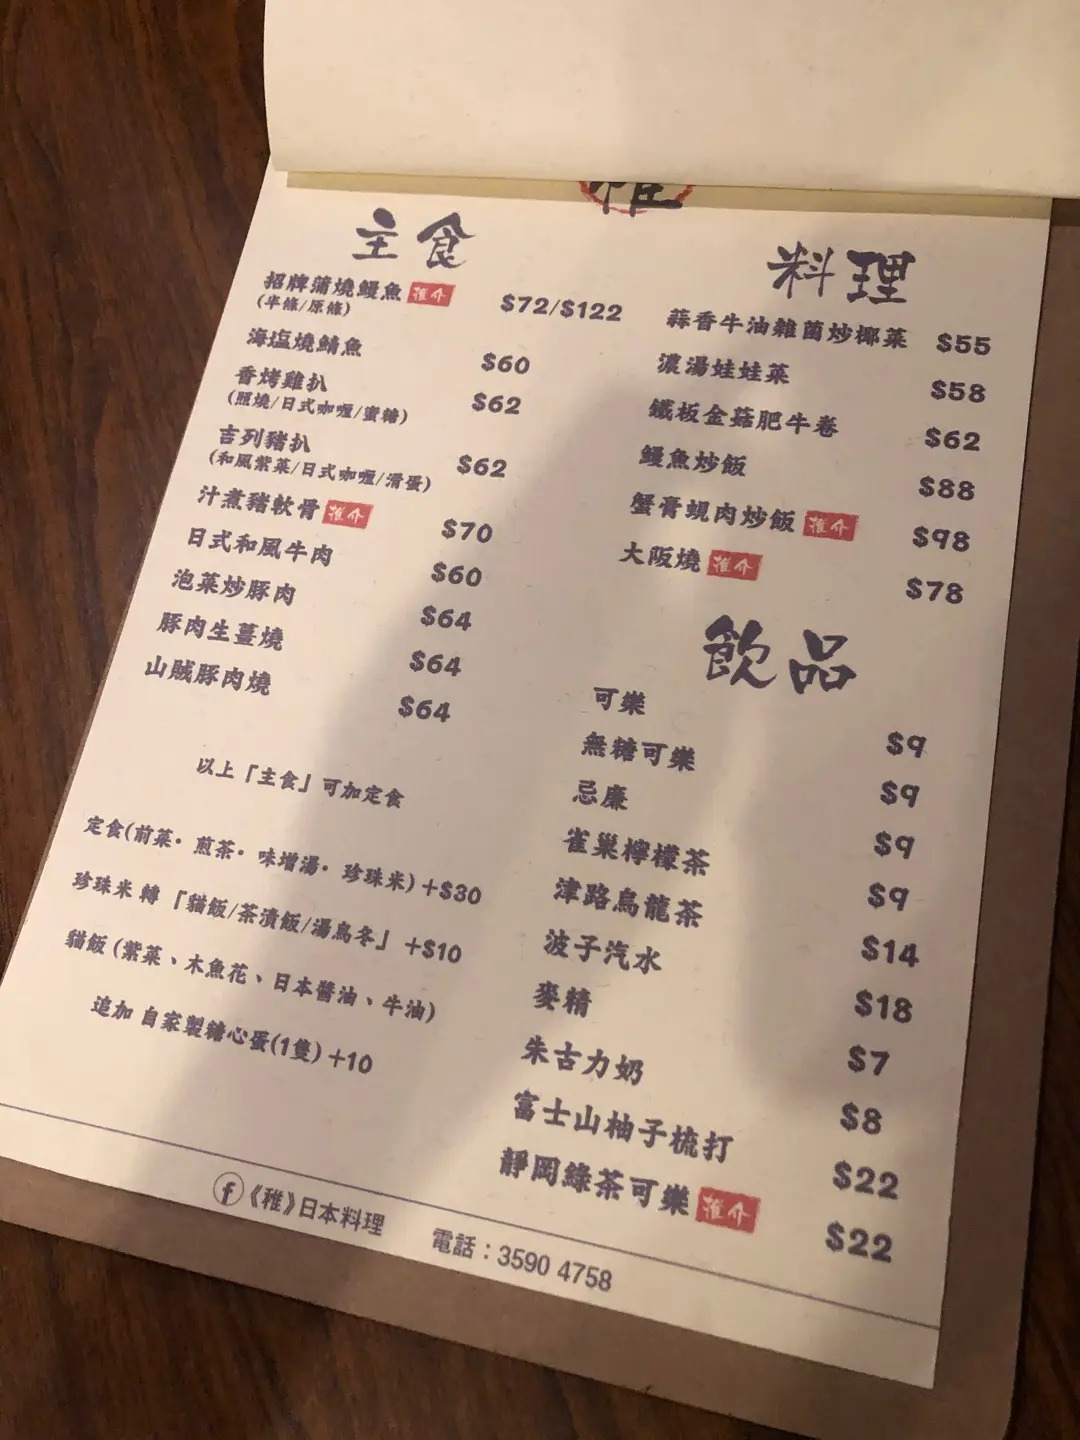 主食
招牌蒲燒鰻魚 推介 $72/$122
(半條/原條)
海塩燒鯖魚 $60
香烤雞扒 $62
(照燒/日式咖喱/蜜糖)
吉列豬扒 $62
(和風紫菜/日式咖喱/滑蛋)
汁煮豬軟骨 推介 $70
日式和風牛肉 $60
泡菜炒豚肉 $64
豚肉生薑燒 $64
山賊豚肉燒 $64
以上「主食」可加定食
定食(前菜・煎茶・味增湯・珍珠米)+$30
珍珠米 轉 「貓飯/茶漬飯/湯烏冬」 +$10
貓飯 (紫菜、木魚花、日本醬油、牛油)
追加 自家製糖心蛋(1隻)+10
料理
蒜香牛油雜菌炒椰菜 $55
濃湯娃娃菜 $58
鐵板金菇肥牛卷 $62
鰻魚炒飯 $88
蟹膏蜆肉炒飯 推介 $98
大阪燒 推介 $78
飲品
可樂 $9
無糖可樂 $9
忌廉 $9
雀巢檸檬茶 $9
津路烏龍茶 $14
波子汽水 $18
麥精 $7
朱古力奶 $8
富士山柚子梳打 $22
靜岡綠茶可樂 推介 $22
《稚》日本料理 電話：3590 4758